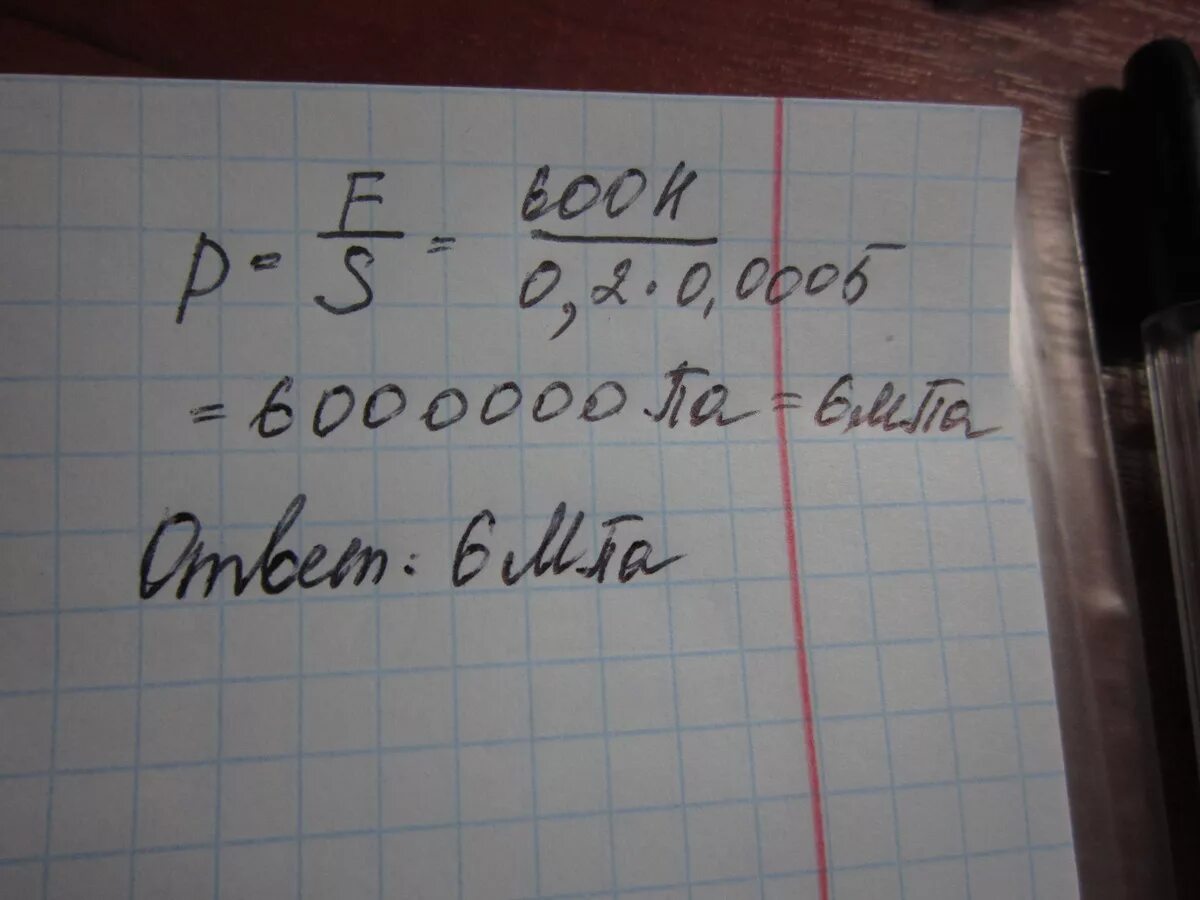 p = F/S = 600Н / 0,2·0,0005
= 6000000 Па = 6МПа
Ответ: 6 МПа